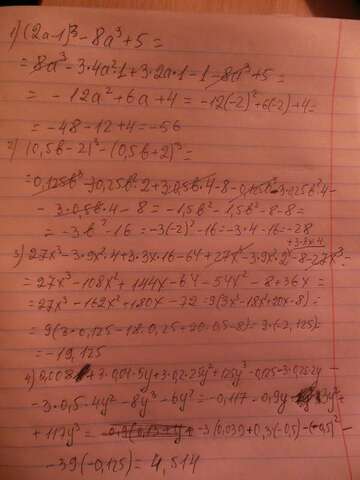 1) (2a-1)³ - 8a³ + 5 =
= 8a³ - 3·4a²·1 + 3·2a·1 - 1 - 8a³ + 5 =
= -12a² + 6a + 4 = -12(-2)² + 6(-2) + 4 =
= -48 - 12 + 4 = -56
2) (0,5b-2)³ - (0,5b+2)³ =
= 0,125b³ - 3·0,25b²·2 + 3·0,5b·4 - 8 - 0,125b³ - 3·0,25b²·
- 3·0,5b·4 - 8 = -1,5b² - 1,5b² - 8 - 8 =
= -3b² - 16 = -3(-2)² - 16 = -3·4 - 16 = -28
+3·3x·4
3) 27x³ - 3·9x²·4 + 3·3x·16 - 64 + 27x³ - 3·9x²·2 - 8 - 27x³ =
= 27x³ - 108x² + 144x - 64 - 54x² - 8 + 36x =
= 27x³ - 162x² + 180x - 72 = 9(3x³ - 18x² + 20x - 8) =
= 9(3·0,125 - 18·0,25 + 20·0,5 - 8) = 9·(-2,125) =
= -19,125
4) 0,008 + 3·0,04·5y + 3·0,2·25y² + 125y³ - 0,125 - 3·0,25·2y -
- 3·0,5·4y² - 8y³ - 6y² = -0,117 - 0,9y + 3y² +
+ 117y³ = -3(0,039 + 0,3(-0,5) - (-0,5)²
- 39(-0,125) = 4,514